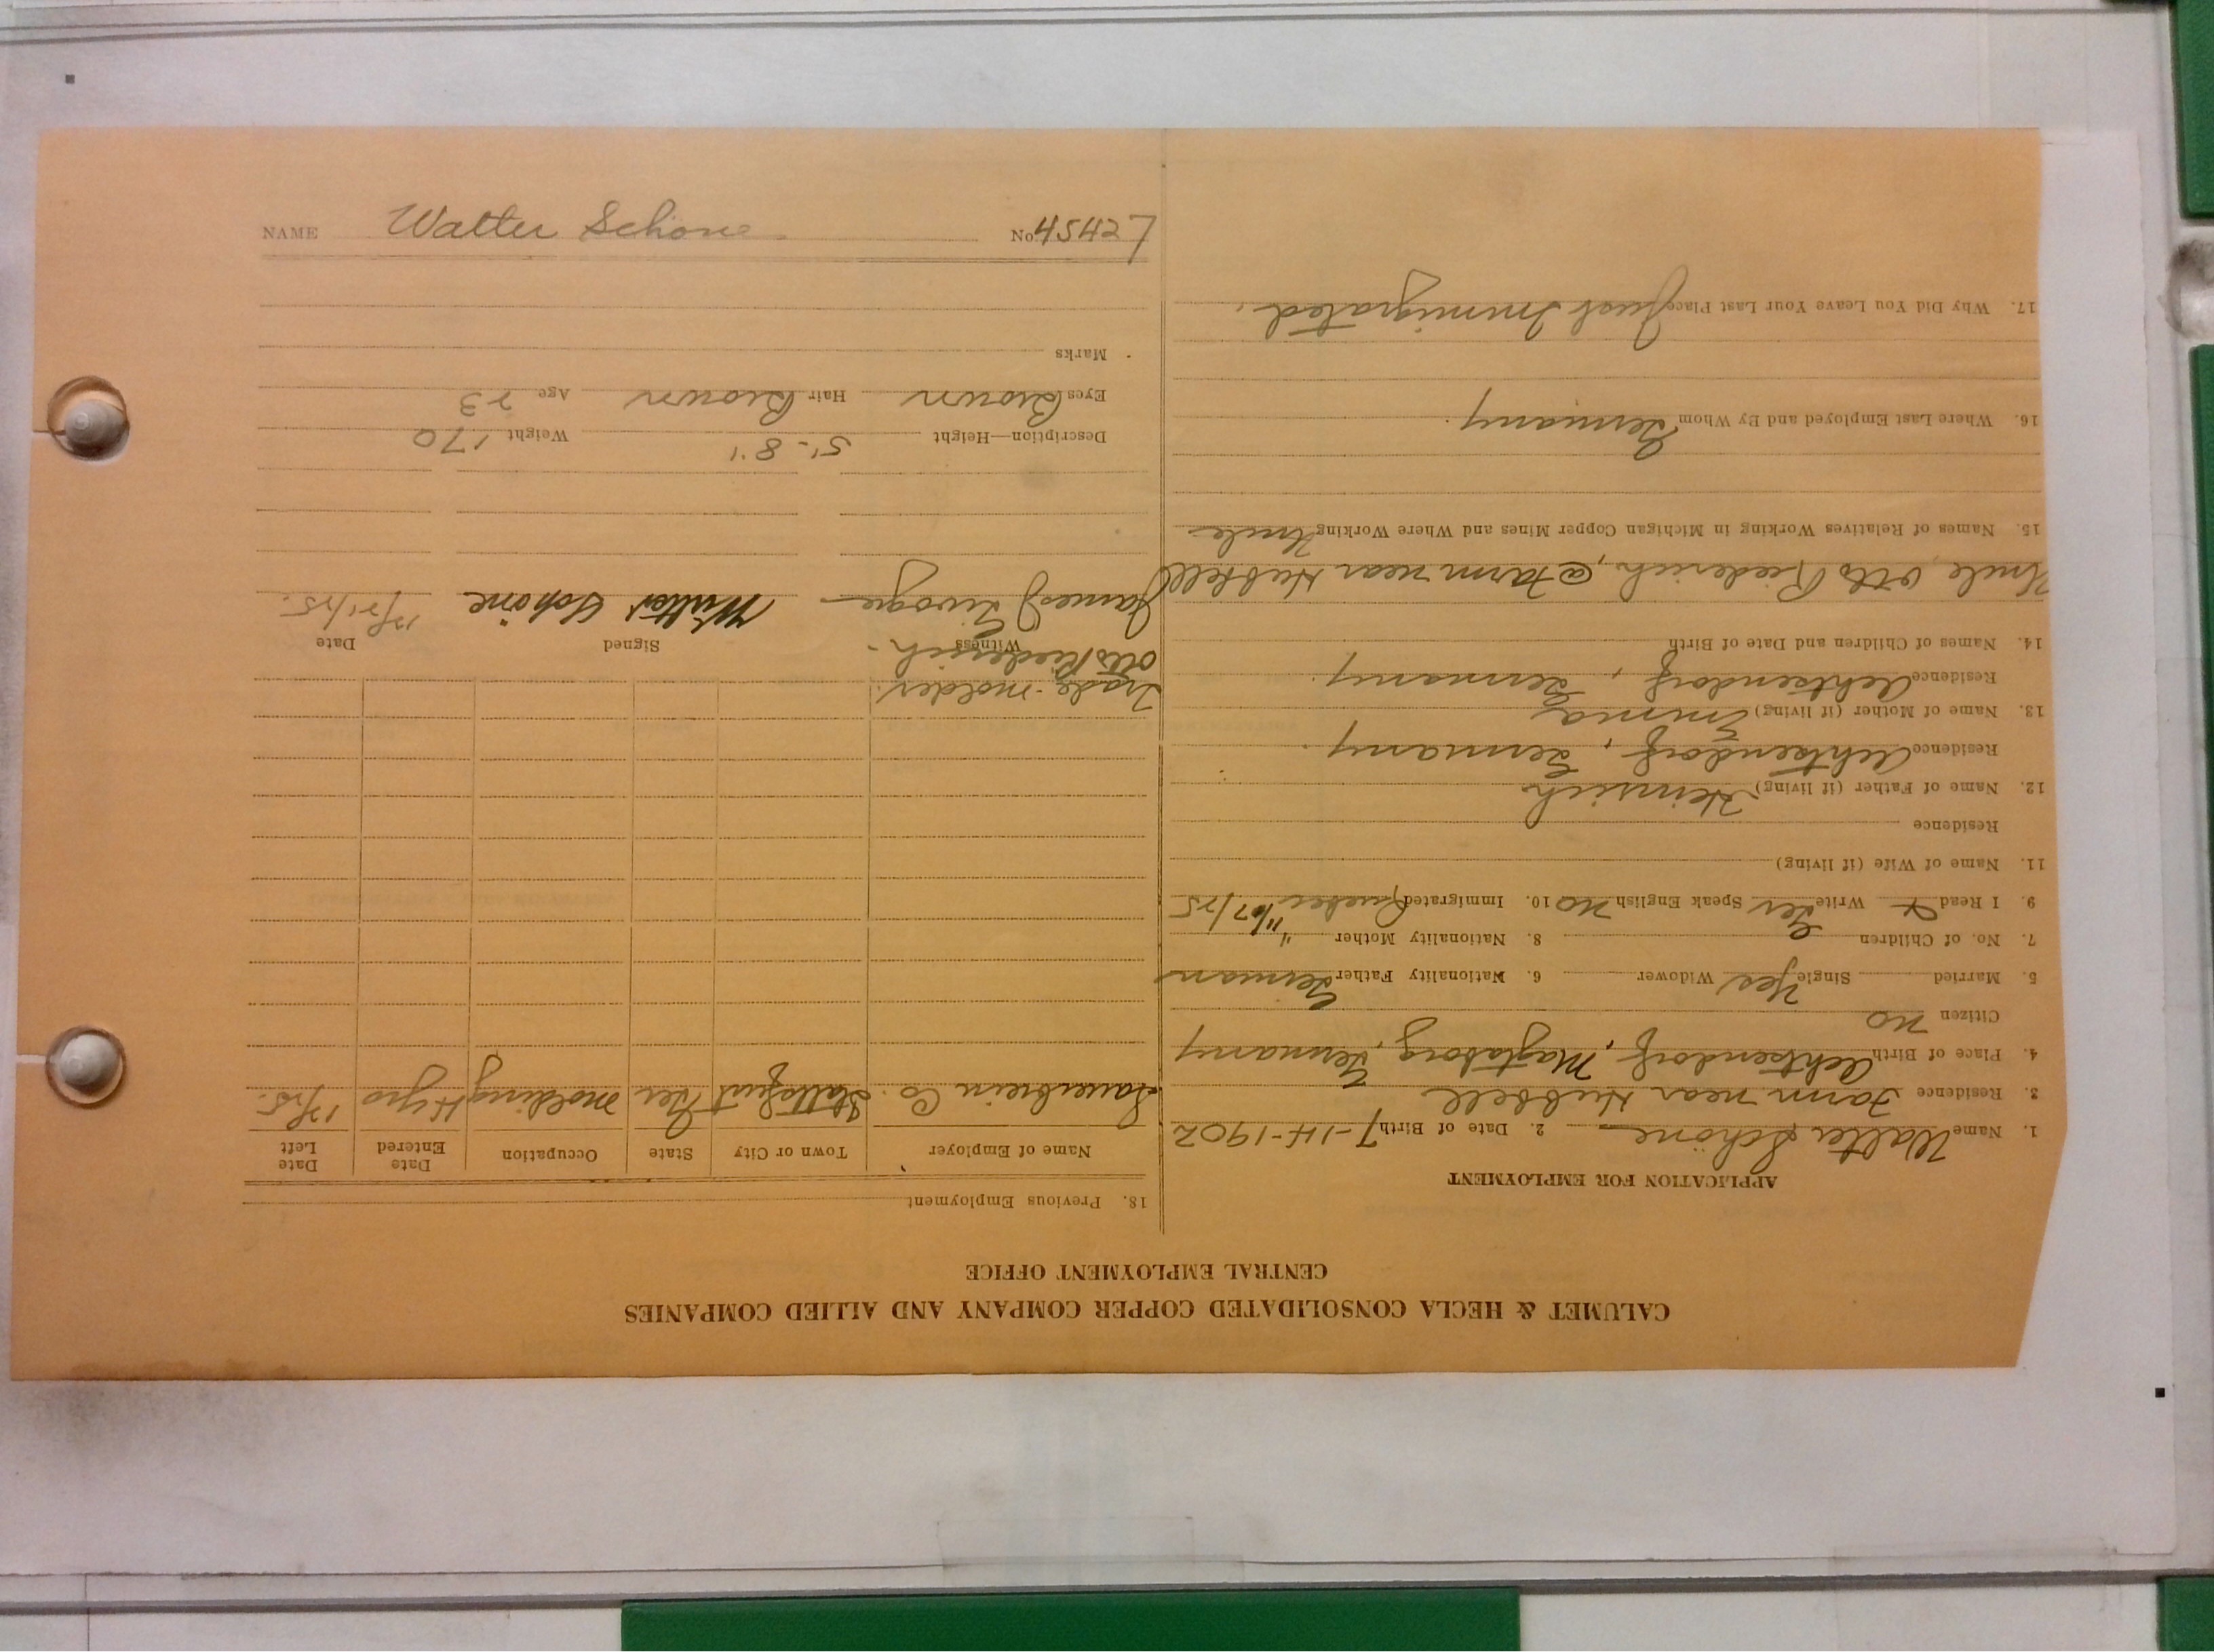 NAME Walter Schöne No. 45427
CALUMET & HECLA CONSOLIDATED COPPER COMPANY AND ALLIED COMPANIES
CENTRAL EMPLOYMENT OFFICE
APPLICATION FOR EMPLOYMENT
1. Name Walter Schöne 2. Date of Birth 7-14-1902
3. Residence Farm near Hubbell
4. Place of Birth Achtsendorf, Magtaborg, Germany
Citizen no
5. Married Single Yes Widower 6. Nationality Father German
7. No. of Children 8. Nationality Mother "
9. I Read & Write Ger Speak English no 10. Immigrated Quebec 11/27/25
11. Name of Wife (if living)
Residence
12. Name of Father (if living) Heinrich
Residence Achtsendorf, Germany.
13. Name of Mother (if living) Emma
Residence Achtsendorf, Germany.
14. Names of Children and Date of Birth
Uncle, Otto Riederich, @ Farm near Hubbell
15. Names of Relatives Working in Michigan Copper Mines and Where Working Uncle
16. Where Last Employed and By Whom Germany.
17. Why Did You Leave Your Last Place Just Immigrated.
18. Previous Employment
Name of Employer Town or City State Occupation Date Entered Date Left
Sauerbrein Co. Ger molding 4 yrs 12/25.
Trade-molder.
Otto Riederich.
Witness Signed Date
James Walter Schöne 12/21/25.
Description—Height 5'-8" Weight 170
Eyes Brown Hair Brown Age 23
Marks